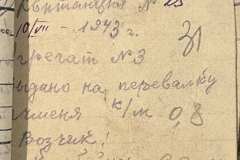 Квитанция № 25
10/VII – 1943 г.
31
грегат № 3
ыдано на перевалку
чменя к/м 0,8
Возчик: